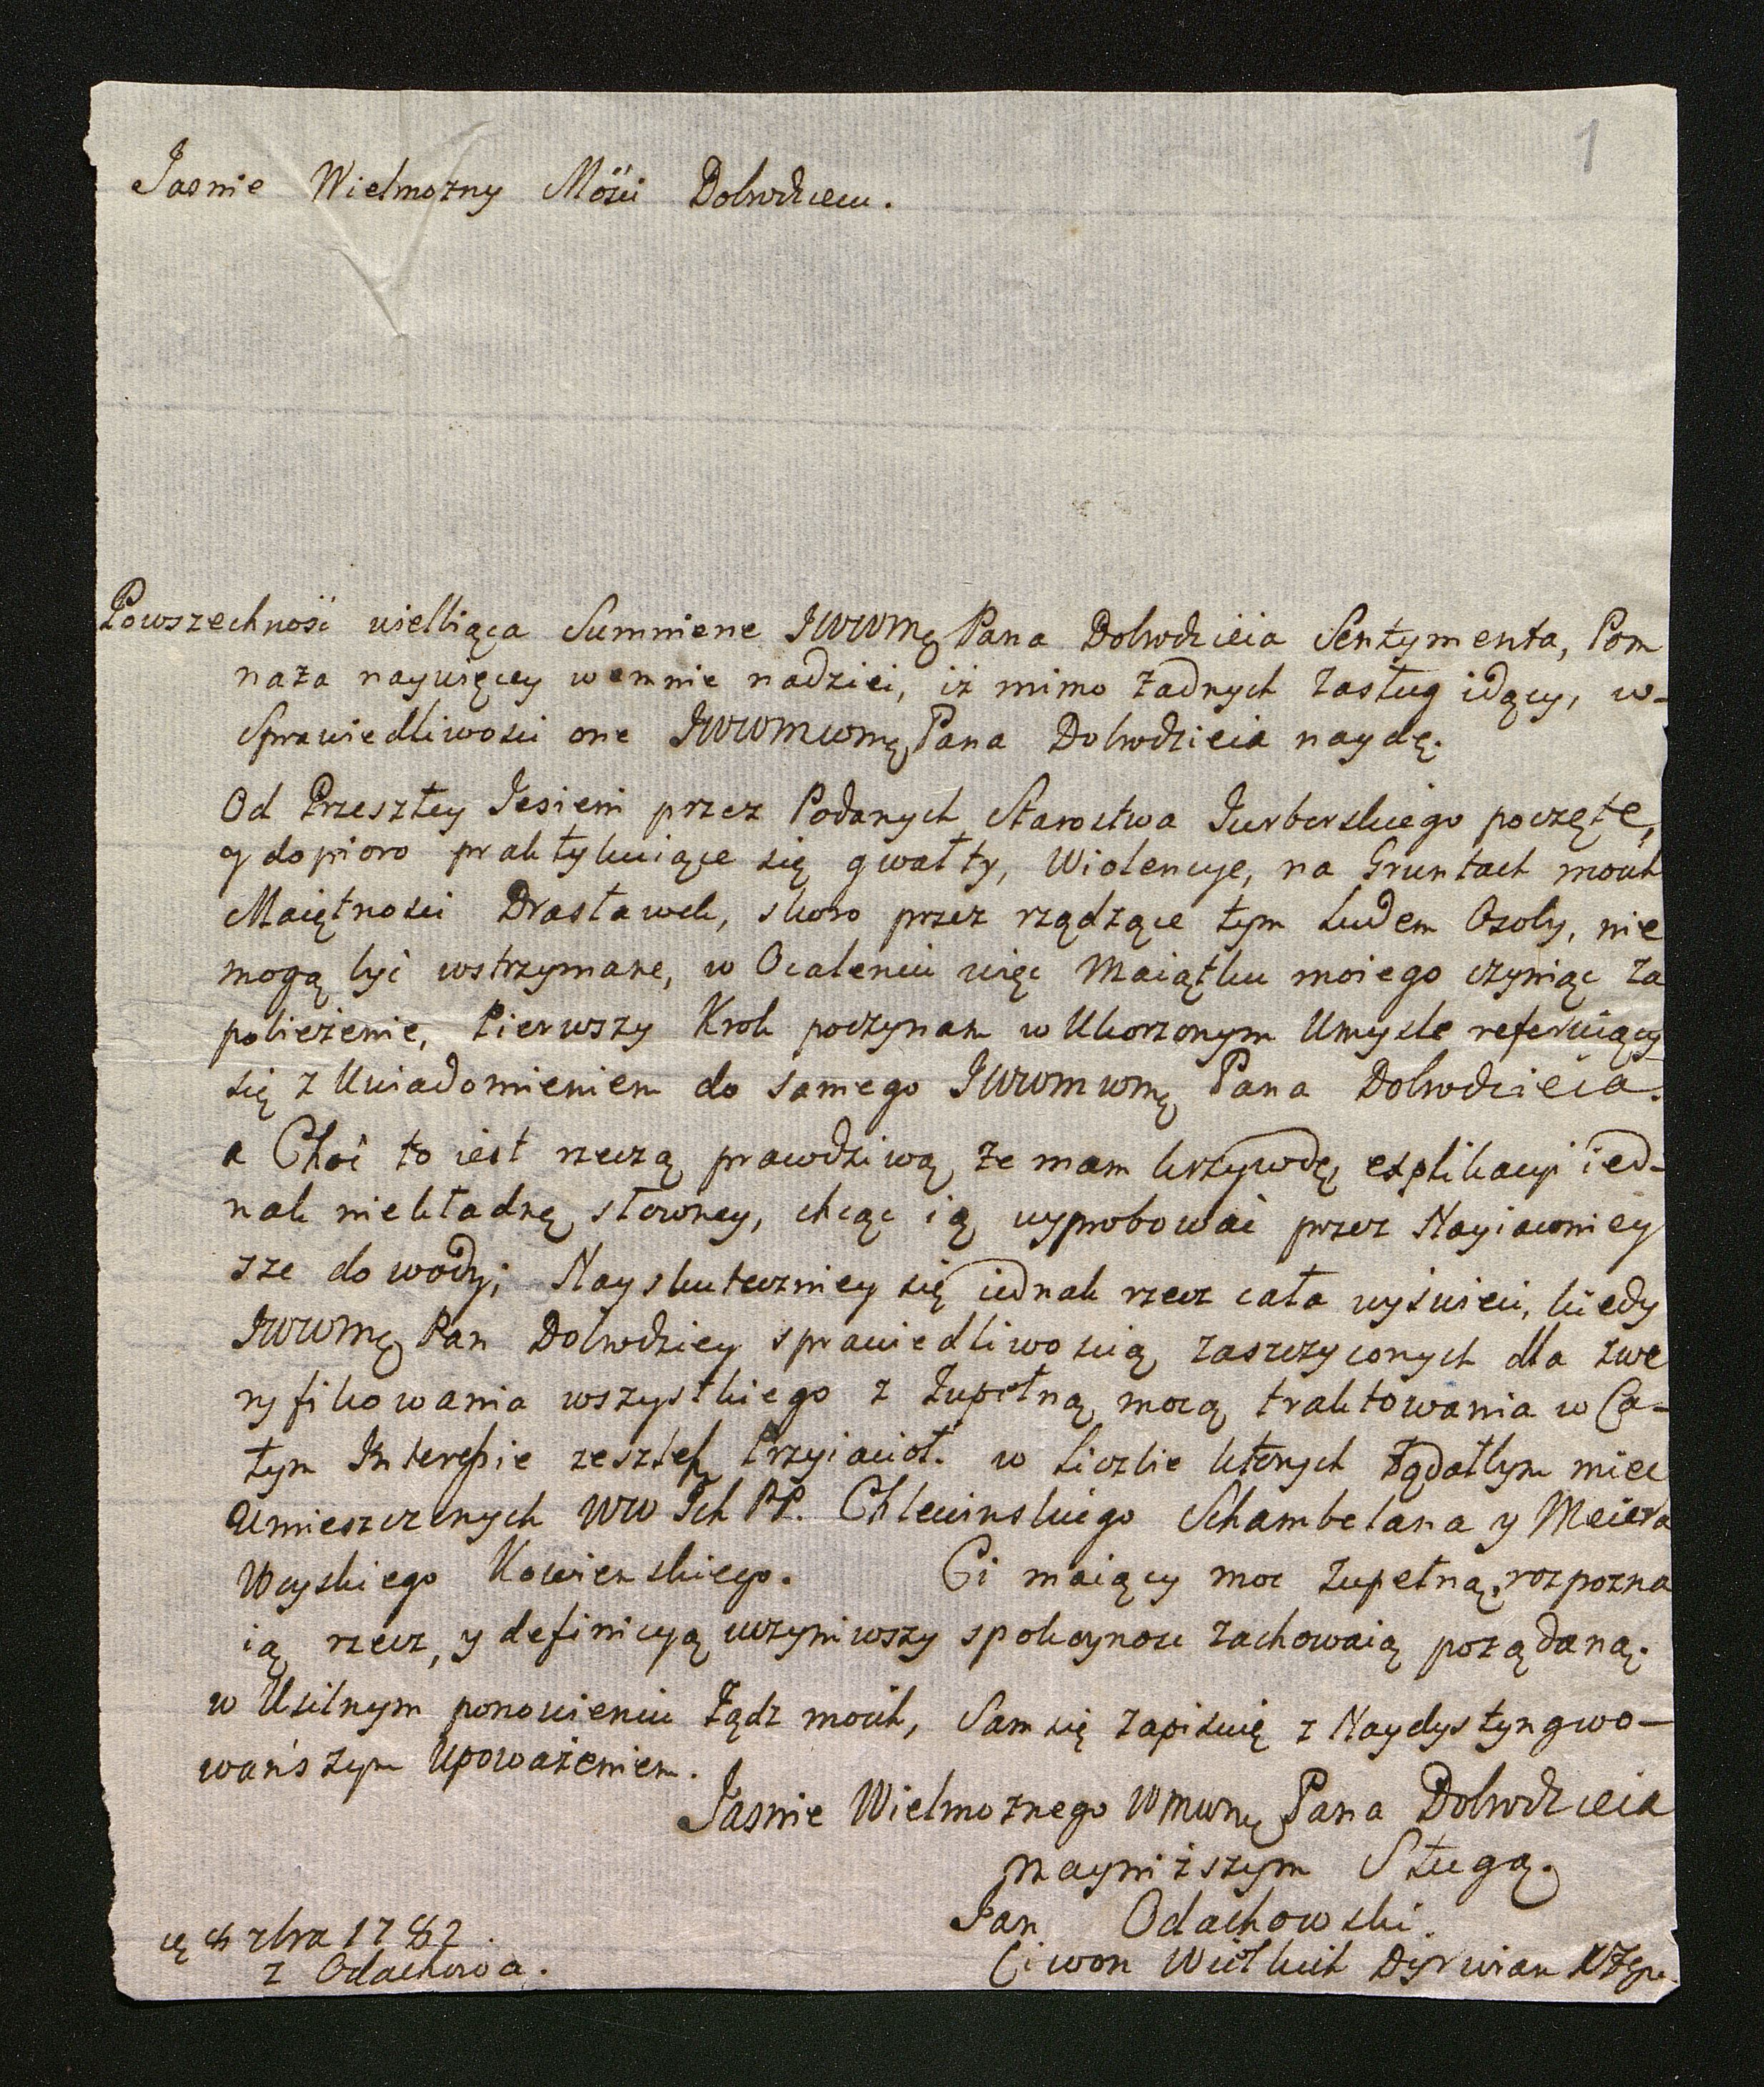 1
Jasnie Wielmozny Mości Dobrodzieiu.
Powszechność wielbiąca Sumniene JWWMę Pana Dobrodzieia Sentymenta, Pom
naża naywięcey wemnie nadziei, iż mimo żadnych zasług idący, w-
Sprawiedliwości one JWWMWMę Pana Dobrodzieia naydę.
Od Przeszłey Jesieni przez Podanych Starostwa Jurborskiego poczęte,
y dopioro praktykuiące się gwałty, Wiolencye, na Gruntach moich
Maiętności Drasławek, skoro przez rządzące tym Ludem Osoby, nie
mogą być wstrzymane, w Ocaleniu więc Maiątku moiego czyniąc za
pobieżenie, Pierwszy Krok poczynam w Ukorzonym Umysle referuiący
się z Uwiadomieniem do samego JWWMWMę Pana Dobrodzieia.
a Choć to iest rzeczą prawdziwą że mam krzywdę explikacyi ied-
nak niekładnę słowney, chcąc ią wyprobować przez Nayiawniey
sze dowody; Nayskuteczniey się iednak rzecz cała wyświeci, kiedy
JWWMę Pan Dobrodziey sprawiedliwoscią zaszczyconych dla zwe
ryfikowania wszystkiego z Zupełną mocą traktowania w Ca-
łym Interessie zeszlesz Przyiacioł. w liczbie ktorych żądałbym miec
Umieszczonych WW Ich PP. Chlewinskiego Schambelana y Meiera
Woyskiego Kowienskiego. Ci maiący moc zupełną, rozpozna
ią rzecz, y definicyą uczyniwszy spokoynosc zachowaią pożądaną.
w Usilnym ponowieniu Żądz moich, Sam się zapisuię z Naydystyngwo-
wańszym Upoważeniem.
Jasnie Wielmożnego WMWMę Pana Dobrodzieia
nayniższym Sługą.
Jan Odachowski.
Ciwon Wiółkich Dyrwian
8 1782.
z Odachowa.